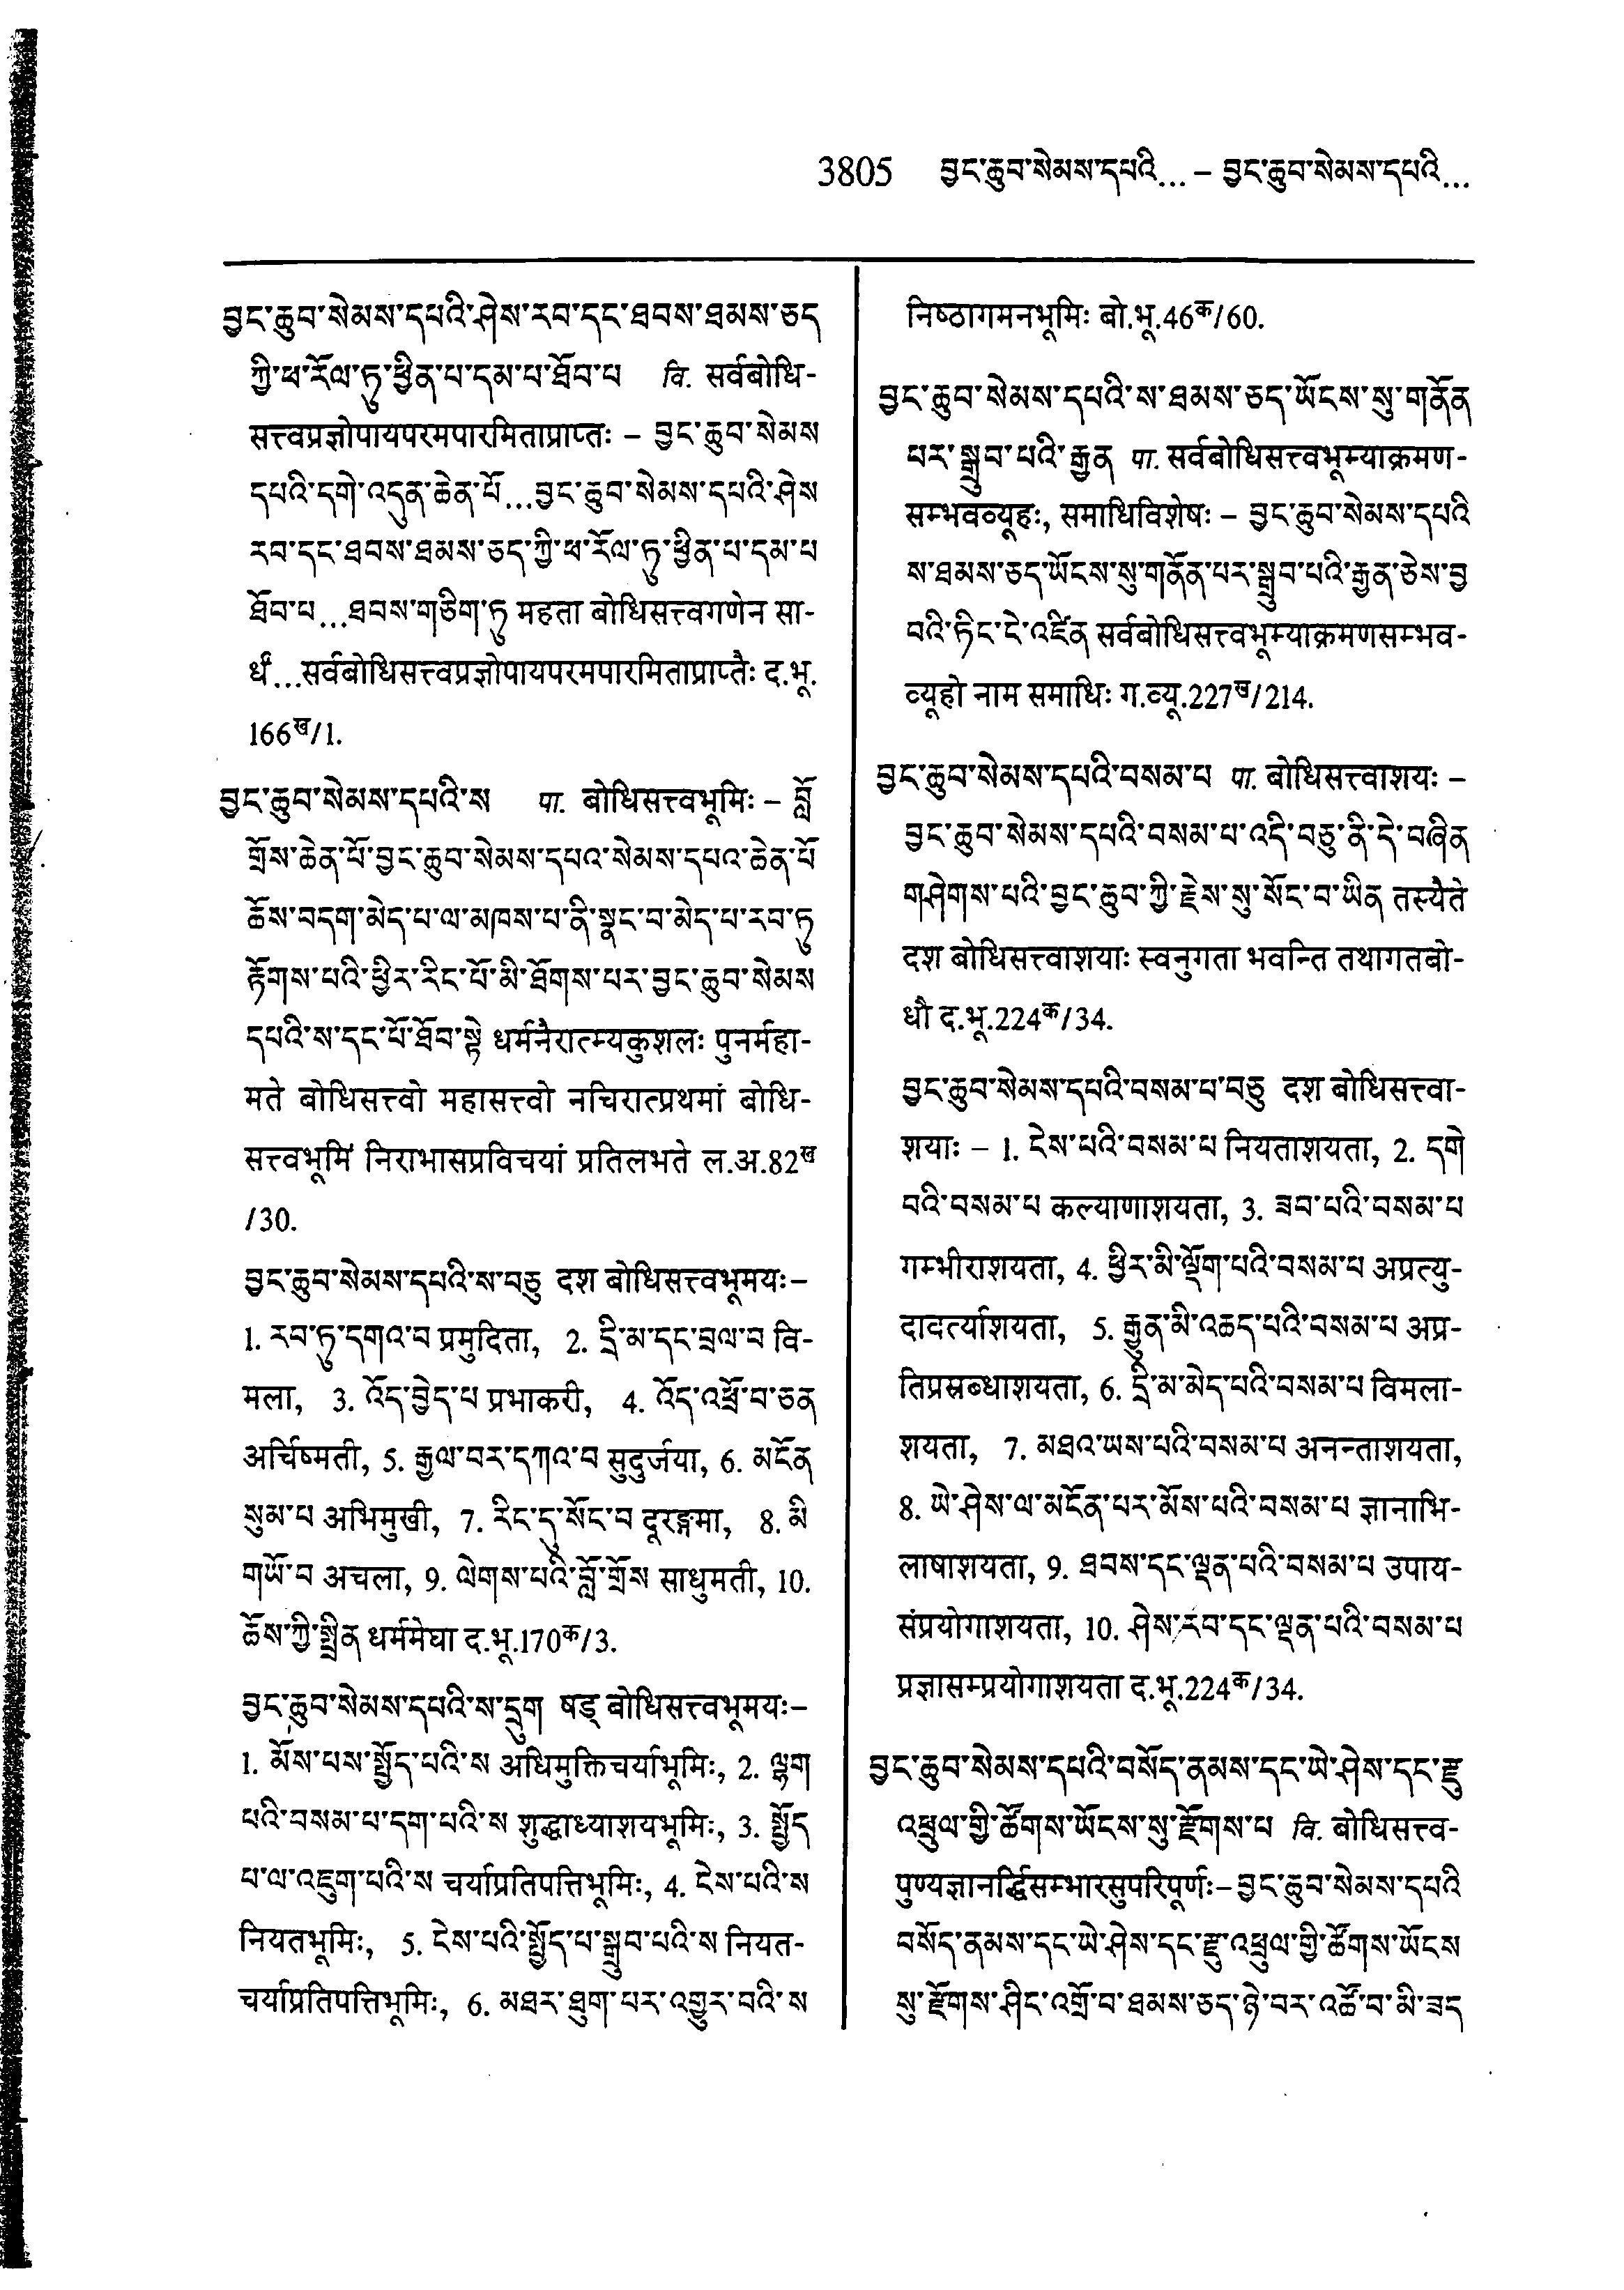 3805 བྱང་ཆུབ་སེམས་དཔའི... – བྱང་ཆུབ་སེམས་དཔའི...
བྱང་ཆུབ་སེམས་དཔའི་ཤེས་རབ་དང་ཐབས་ཐམས་ཅད
ཀྱི་ཕ་རོལ་ཏུ་ཕྱིན་པ་དམ་པ་ཐོབ་པ वि. सर्वबोधि-
सत्त्वप्रज्ञोपायपरमपारमिताप्राप्तः – བྱང་ཆུབ་སེམས
དཔའི་དགེ་འདུན་ཆེན་པོ...བྱང་ཆུབ་སེམས་དཔའི་ཤེས
རབ་དང་ཐབས་ཐམས་ཅད་ཀྱི་ཕ་རོལ་ཏུ་ཕྱིན་པ་དམ་པ
ཐོབ་པ...ཐབས་གཅིག་ཏུ महता बोधिसत्त्वगणेन सा-
र्धं...सर्वबोधिसत्त्वप्रज्ञोपायपरमपारमिताप्राप्तैः द.भू.
166ख/1.
བྱང་ཆུབ་སེམས་དཔའི་ས पा. बोधिसत्त्वभूमिः – བློ
གྲོས་ཆེན་པོ་བྱང་ཆུབ་སེམས་དཔའ་སེམས་དཔའ་ཆེན་པོ
ཆོས་བདག་མེད་པ་ལ་མཁས་པ་ནི་སྣང་བ་མེད་པ་རབ་ཏུ
རྟོགས་པའི་ཕྱིར་རིང་པོ་མི་ཐོགས་པར་བྱང་ཆུབ་སེམས
དཔའི་ས་དང་པོ་ཐོབ་སྟེ धर्मनैरात्म्यकुशलः पुनर्महा-
मते बोधिसत्त्वो महासत्त्वो नचिरात्प्रथमां बोधि-
सत्त्वभूमिं निराभासप्रविचयां प्रतिलभते ल.अ.82ख
/30.
བྱང་ཆུབ་སེམས་དཔའི་ས་བཅུ दश बोधिसत्त्वभूमयः–
1. རབ་ཏུ་དགའ་བ प्रमुदिता, 2. དྲི་མ་དང་བྲལ་བ वि-
मला, 3. འོད་བྱེད་པ प्रभाकरी, 4. འོད་འཕྲོ་བ་ཅན
अर्चिष्मती, 5. རྒྱལ་བར་དཀའ་བ सुदुर्जया, 6. མངོན
སུམ་པ अभिमुखी, 7. རིང་དུ་སོང་བ दूरङ्गमा, 8. མི
གཡོ་བ अचला, 9. ལེགས་པའི་བློ་གྲོས साधुमती, 10.
ཆོས་ཀྱི་སྤྲིན धर्ममेघा द.भू.170क/3.
བྱང་ཆུབ་སེམས་དཔའི་ས་དྲུག षड् बोधिसत्त्वभूमयः–
1. མོས་པས་སྤྱོད་པའི་ས अधिमुक्तिचर्याभूमिः, 2. ལྷག
པའི་བསམ་པ་དག་པའི་ས शुद्धाध्याशयभूमिः, 3. སྤྱོད
པ་ལ་འཇུག་པའི་ས चर्याप्रतिपत्तिभूमिः, 4. ངེས་པའི་ས
नियतभूमिः, 5. ངེས་པའི་སྤྱོད་པ་སྒྲུབ་པའི་ས नियत-
चर्याप्रतिपत्तिभूमिः, 6. མཐར་ཐུག་པར་འགྱུར་བའི་ས
निष्ठागमनभूमिः बो.भू.46क/60.
བྱང་ཆུབ་སེམས་དཔའི་ས་ཐམས་ཅད་ཡོངས་སུ་གནོན
པར་སྒྲུབ་པའི་རྒྱན पा. सर्वबोधिसत्त्वभूम्याक्रमण-
सम्भवव्यूहः, समाधिविशेषः – བྱང་ཆུབ་སེམས་དཔའི
ས་ཐམས་ཅད་ཡོངས་སུ་གནོན་པར་སྒྲུབ་པའི་རྒྱན་ཅེས་བྱ
བའི་ཏིང་ངེ་འཛིན सर्वबोधिसत्त्वभूम्याक्रमणसम्भव-
व्यूहो नाम समाधिः ग.व्यू.227ख/214.
བྱང་ཆུབ་སེམས་དཔའི་བསམ་པ पा. बोधिसत्त्वाशयः –
བྱང་ཆུབ་སེམས་དཔའི་བསམ་པ་འདི་བཅུ་ནི་དེ་བཞིན
གཤེགས་པའི་བྱང་ཆུབ་ཀྱི་རྗེས་སུ་སོང་བ་ཡིན तस्यैते
दश बोधिसत्त्वाशयाः स्वनुगता भवन्ति तथागतबो-
धौ द.भू.224क/34.
བྱང་ཆུབ་སེམས་དཔའི་བསམ་པ་བཅུ दश बोधिसत्त्वा-
शयाः – 1. ངེས་པའི་བསམ་པ नियताशयता, 2. དགེ
བའི་བསམ་པ कल्याणाशयता, 3. ཟབ་པའི་བསམ་པ
गम्भीराशयता, 4. ཕྱིར་མི་ལྡོག་པའི་བསམ་པ अप्रत्यु-
दावर्त्याशयता, 5. རྒྱུན་མི་འཆད་པའི་བསམ་པ अप्र-
तिप्रस्रब्धाशयता, 6. དྲི་མ་མེད་པའི་བསམ་པ विमला-
शयता, 7. མཐའ་ཡས་པའི་བསམ་པ अनन्ताशयता,
8. ཡེ་ཤེས་ལ་མངོན་པར་མོས་པའི་བསམ་པ ज्ञानाभि-
लाषाशयता, 9. ཐབས་དང་ལྡན་པའི་བསམ་པ उपाय-
संप्रयोगाशयता, 10. ཤེས་རབ་དང་ལྡན་པའི་བསམ་པ
प्रज्ञासम्प्रयोगाशयता द.भू.224क/34.
བྱང་ཆུབ་སེམས་དཔའི་བསོད་ནམས་དང་ཡེ་ཤེས་དང་རྫུ
འཕྲུལ་གྱི་ཚོགས་ཡོངས་སུ་རྫོགས་པ वि. बोधिसत्त्व-
पुण्यज्ञानर्द्धिसम्भारसुपरिपूर्णः–བྱང་ཆུབ་སེམས་དཔའི
བསོད་ནམས་དང་ཡེ་ཤེས་དང་རྫུ་འཕྲུལ་གྱི་ཚོགས་ཡོངས
སུ་རྫོགས་ཤིང་འགྲོ་བ་ཐམས་ཅད་ཉེ་བར་འཚོ་བ་མི་ཟད